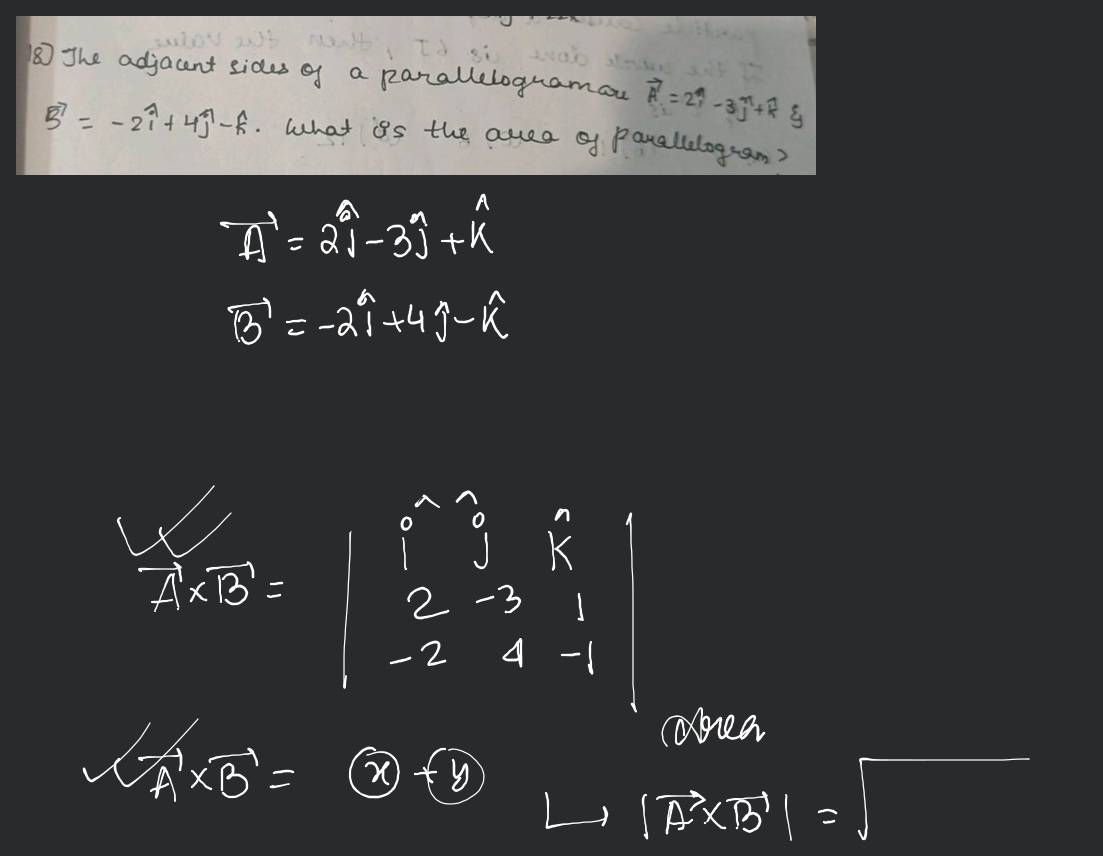 18) The adjacent sides of a parallelogram are A⃗ = 2î - 3ĵ + k̂ &
B⃗ = - 2î + 4ĵ - k̂. What is the area of parallelogram?
A⃗ = 2î - 3ĵ + k̂
B⃗ = -2î + 4ĵ - k̂
î ĵ k̂
A⃗ × B⃗ = 2 -3 1
-2 4 -1
Area
A⃗ × B⃗ = x + y
↳ |A⃗ × B⃗| = √